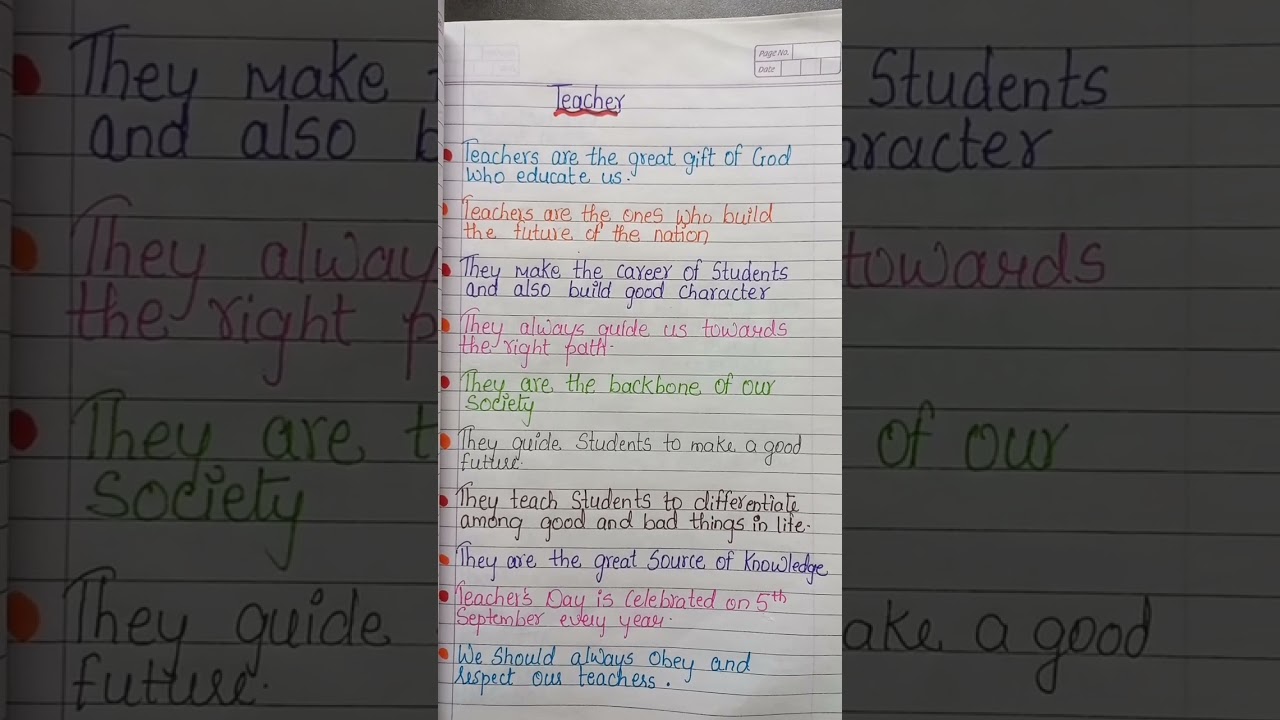 Page No.
Date
Teacher
Teachers are the great gift of God
who educate us.
Teachers are the ones who build
the future of the nation
They make the career of Students
and also build good character
They always guide us towards
the right path.
They are the backbone of our
Society
They guide Students to make a good
future.
They teach Students to differentiate
among good and bad things in life.
They are the great Source of Knowledge
Teacher's Day is Celebrated on 5th
September every year.
We Should always Obey and
respect our teachers.